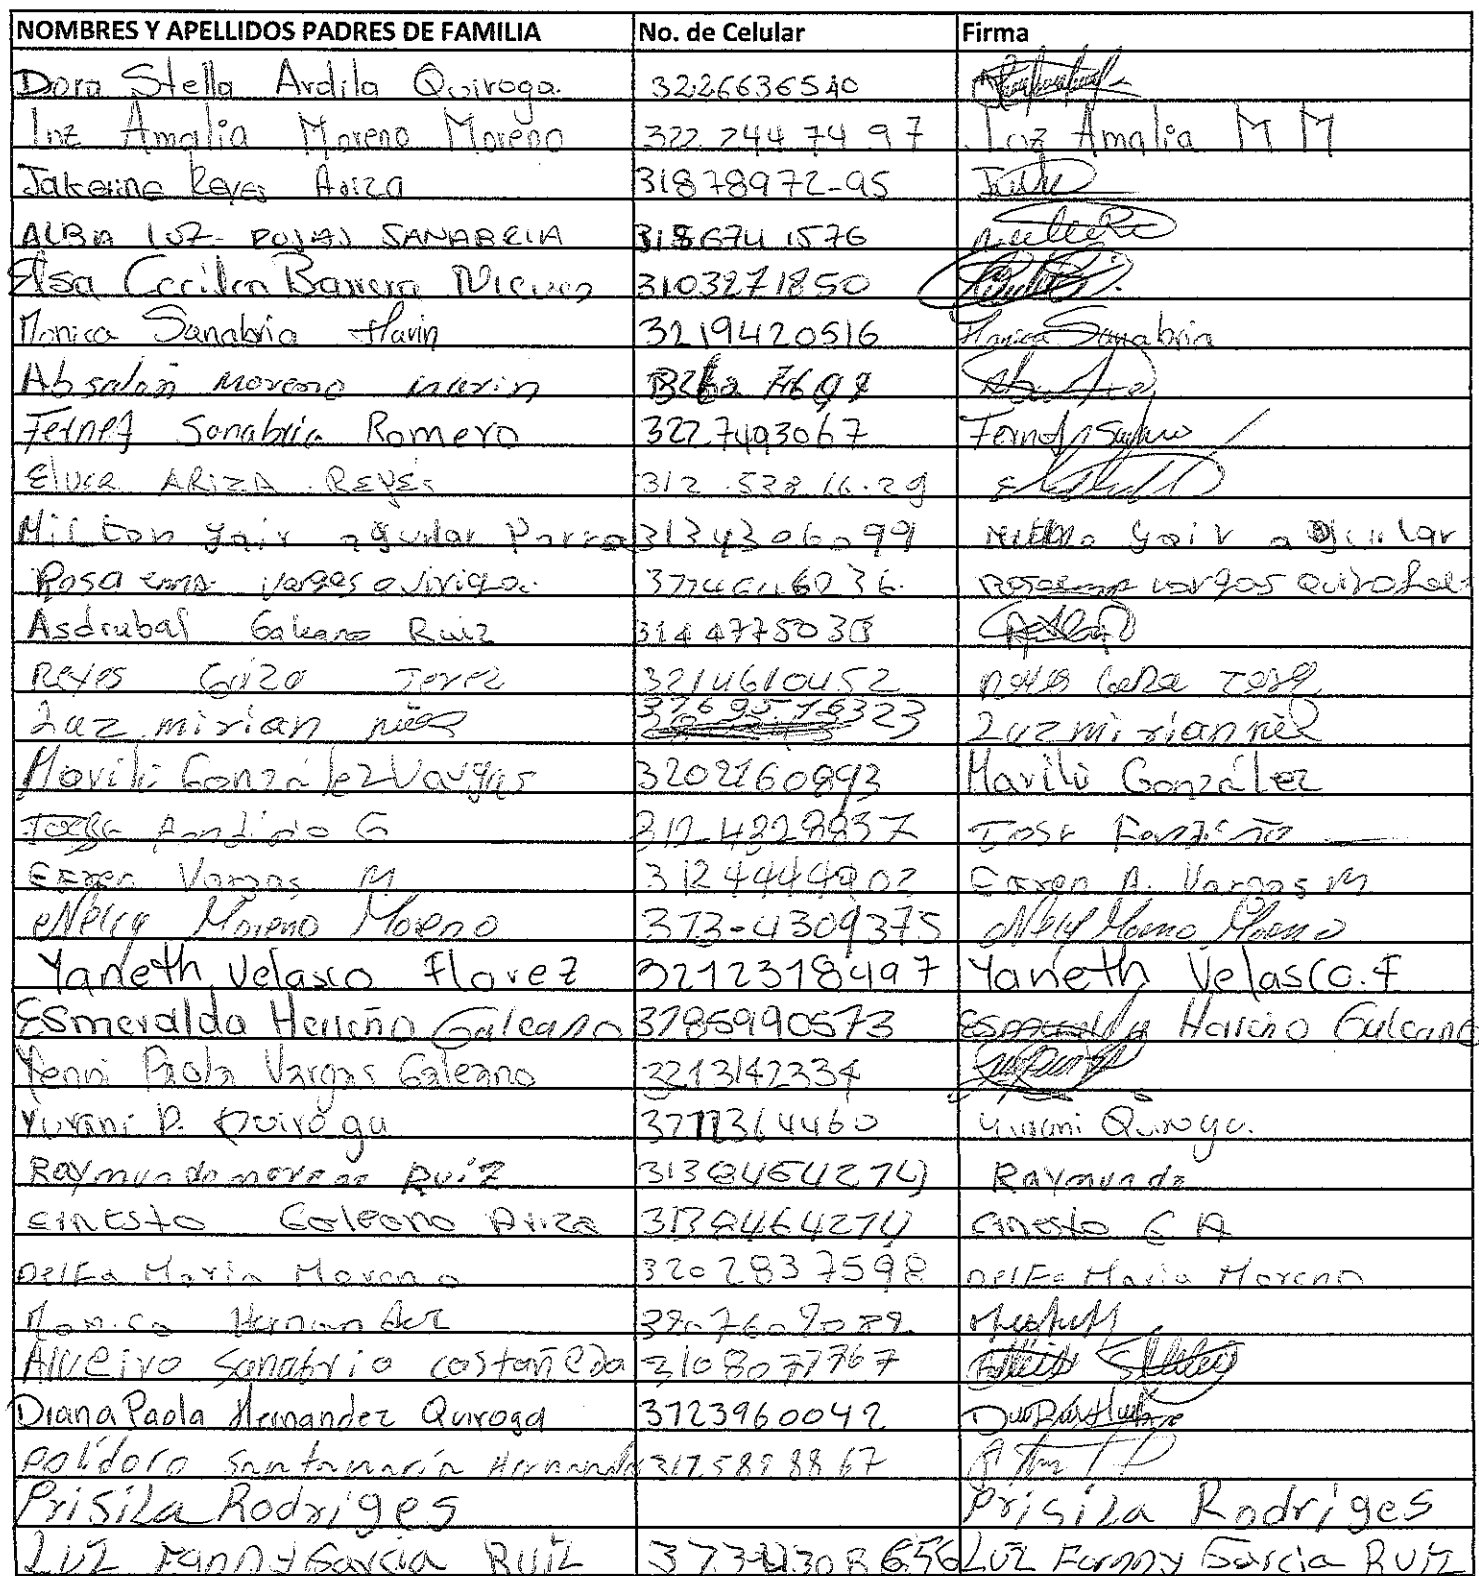 NOMBRES Y APELLIDOS PADRES DE FAMILIA No. de Celular Firma
Dora Stella Ardila Quiroga. 3226636540
Luz Amalia Moreno Moreno 322 244 74 97 Luz Amalia M M
Jakerine Reyes Ariza 31878972-95
ALBA LUZ ROJAS SANABRIA 318674 1576
Elsa Cecilia Barrera Nieves 3103271850
Monica Sanabria Marin 3219420516 Monica Sanabria
Absalón Moreno marin
Ferney Sanabria Romero 3227493067
ARIZA REYES 312 538 16 29
Milton Yair aguilar Parra 3134306099 Yair aguilar
Rosa ema vargas quiroga. vargas
Asdrubal Galeano Ruiz
Reyes Ariza Jerez 3214610452
Luz mirian 323 Luz mirian
Marilú González Vargas 3202160893 Marilú González
G 312-4828837
Vargas M 3124444902 A. Vargas M
Nelcy Moreno Moreno 313-4309375 Moreno Moreno
Yaneth Velasco Florez 3212318497 Yaneth Velasco.F
Esmeralda Herreño Galeano 3185990573 Esmeralda Herreño Galeano
Yenni Paola Vargas Galeano 3213142334
Yurani P. Quiroga 4460 Yurani Quiroga.
Raymundo moreno Ruiz 3138464274 Raymundo
Ernesto Galeano Ariza 3138464274 Ernesto G A
Delfa Maria Moreno 3202837598 Delfa Maria Moreno
Monica Hernandez
Alveiro Sanabria castañeda 3108077767
Diana Paola Hernandez Quiroga 3123960042
Polidoro Santamaría Hernande 312589 8867
Prisila Rodriges Prisila Rodriges
LUZ FannY Garcia RUIZ LUZ FannY Garcia RUIZ